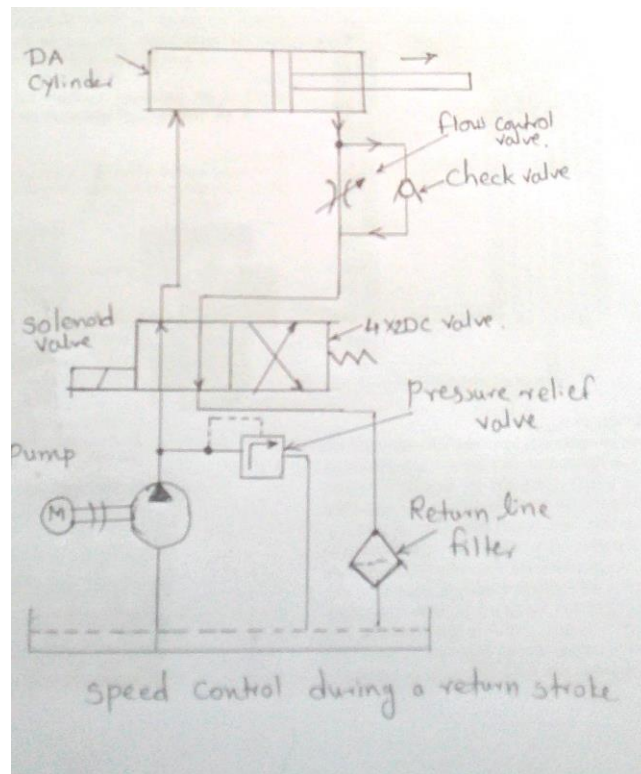 DA
Cylinder
flow control
valve.
Check valve
Solenoid
valve
4x2DC valve.
Pressure relief
valve
Pump
M
Return line
filter
Speed control during a return stroke